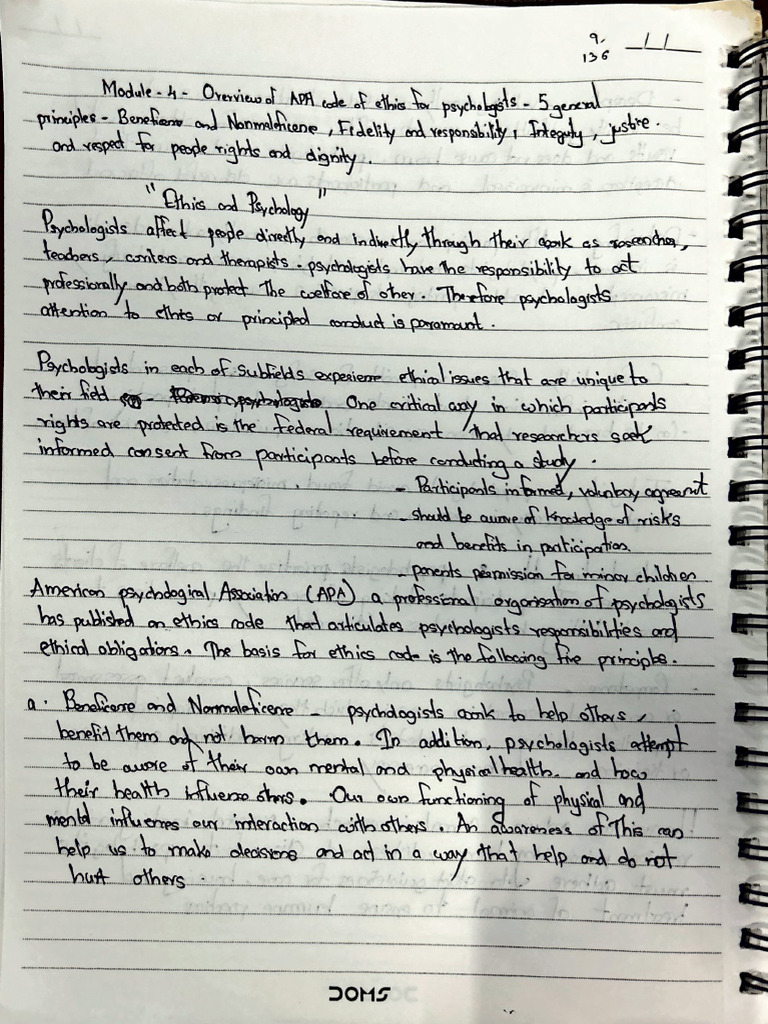 9,
136
Module - 4 - Overview of APA code of ethics for psychologists - 5 general
principles - Beneficene and Nonmaleficene, Fidelity and responsibility, Integrity, justice.
and respect for people rights and dignity.
"Ethics and Psychology"
Psychologists affect people directly and indirectly through their work as researcher,
teachers, writers and therapists. psychologists have the responsibility to act
professionally and both protect The welfare of other. Therefore psychologists
attention to ethics or principled conduct is paramount.
Psychologists in each of subfields experience ethical issues that are unique to
their field One critical way in which participants
rights are protected is the Federal requirement that researchers seek
informed consent from participants before conducting a study.
- Participants informed, voluntary agreement
- should be aware of knowledge of risks
and benefits in participation.
- parents permission for minor children
American psychological Association (APA) a professional organisation of psychologists
has published an ethics code that articulates psychologists responsibilities and
ethical obligations. The basis for ethics code is the following five principles.
a. Beneficene and Nonmaleficene - psychologists work to help others,
benefit them and not harm them. In addition, psychologists attempt
to be aware of their own mental and physical health. and how
their health influence others. Our own functioning of physical and
mental influences our interaction with others. An awareness of This can
help us to make decisions and act in a way that help and do not
hurt others.
DOMS